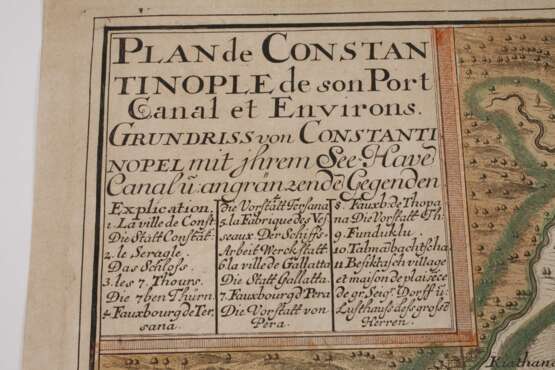 PLAN de CONSTAN
TINOPLE de son Port
Canal et Environs.
GRUNDRISS von CONSTANTI
NOPEL mit jhrem See-Have
Canal ũ. angränzende Gegenden
Explication.
1. La ville de Const.
Die Statt Constāt.
2. le Seragle
Das Schloss.
3. les 7. Thours.
Die 7ben Thürn.
4. Fauxbourg de Ter
sana.
die Vorstatt Tersana
5. la Fabrique des Ves
seaux Der Schiffs-
Arbeit Werckstatt
6. la ville de Gallatta
Die Statt Gallatta.
7. Fauxbourg d'Pera
Die Vorstatt von
Pera.
8. Fauxb. de Thopa
na Die Vorstatt Th.
9. Funduklu.
10. Talmabachtscha
11. Besiktasch village
et maison de plaisēce
de gr. Seigr. Dorff ũ.
Lusthauss dess grosē
Herren.
Kiathana